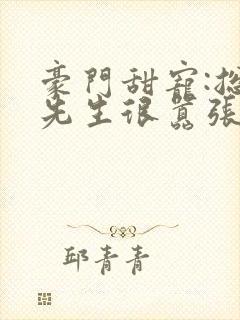 豪門甜寵:總
先生很囂張
邱青青